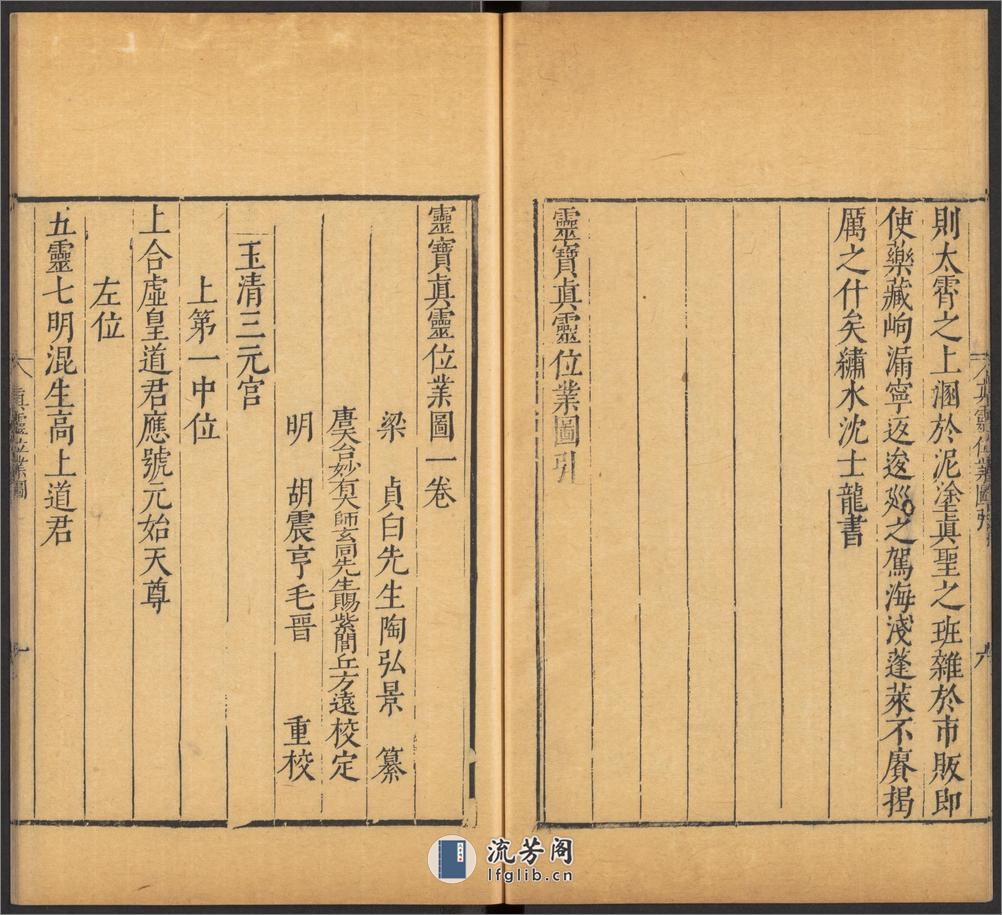 則太霄之上溷於泥塗眞聖之班雜於市販即
使藥藏峋漏寧返逡廵之駕海淺蓬萊不賡揭
厲之什矣繡水沈士龍書
靈寶眞靈位業圖引
眞靈位業圖引
六
靈寶眞靈位業圖一卷
梁 貞白先生陶弘景 纂
唐天台妙有大師玄同先生賜紫閭丘方遠校定
明 胡震亨毛晉 重校
玉清三元宮
上第一中位
上合虛皇道君應號元始天尊
左位
五靈七明混生高上道君
眞靈位業圖
一
流芳阁
lfglib.cn